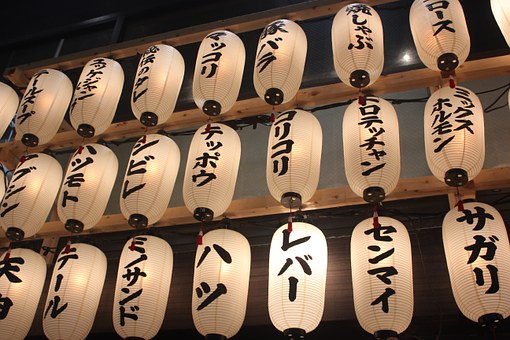 マッコリ
豚バラ
焼しゃぶ
ロース
ハツモト
テッポウ
コリコリ
トロテッチャン
ミックス
ホルモン
テール
ミノサンド
ハツ
レバー
センマイ
サガリ